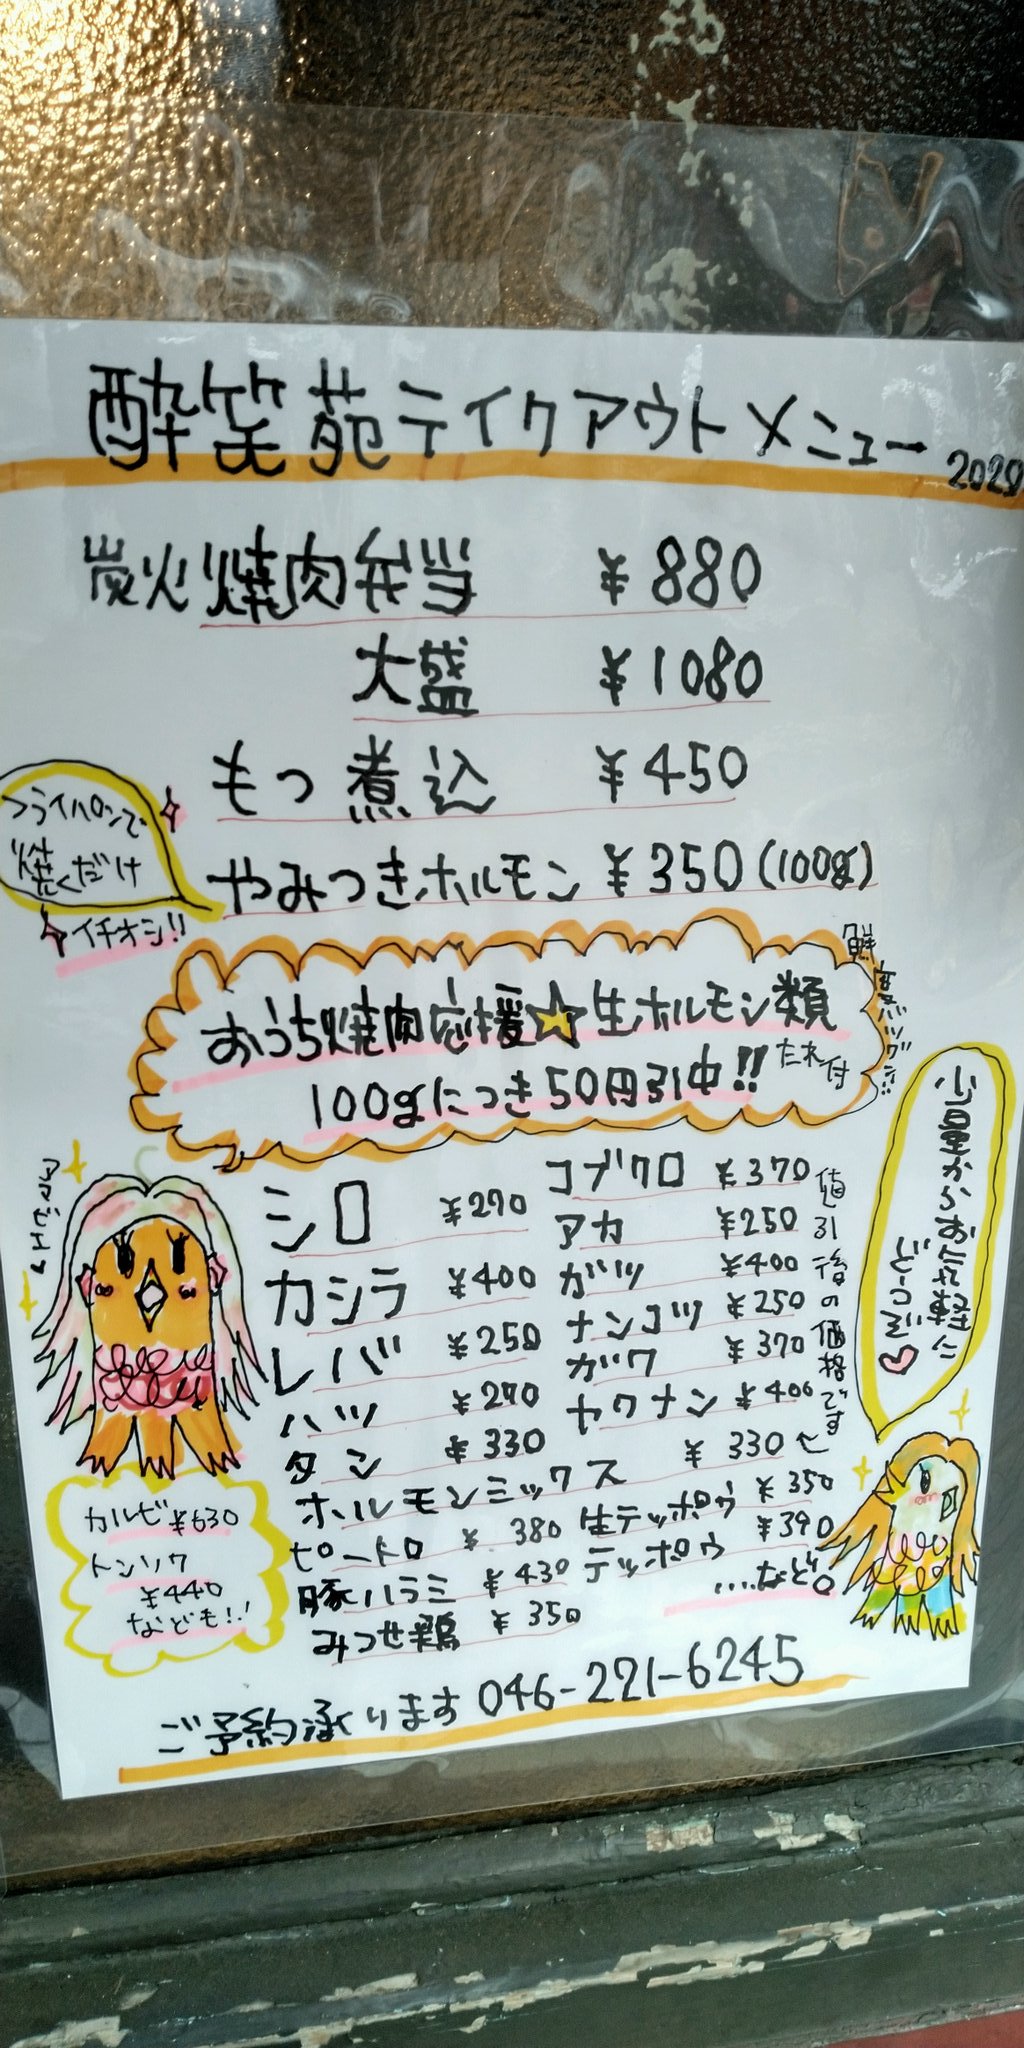 酔笑苑テイクアウトメニュー 2020
炭火焼肉弁当 ¥880
大盛 ¥1080
もつ煮込 ¥450
やみつきホルモン ¥350(100g)
フライパンで
焼くだけ
イチオシ!!
おうち焼肉応援☆生ホルモン類
100gにつき50円引中!!
たれ付
鮮度バツグン!!
少量からお気軽に
どーぞ♡
アマビエ
シロ ¥270
カシラ ¥400
レバ ¥250
ハツ ¥270
タン ¥330
コブクロ ¥370
アカ ¥250
ガツ ¥400
ナンコツ ¥250
ガワ ¥370
ヤワナン ¥400
値引後の価格です
ホルモンミックス ¥330
ピートロ ¥380
豚ハラミ ¥430
みつせ鶏 ¥350
生テッポウ ¥350
テッポウ ¥390
....など。
カルビ ¥630
トンソク
¥440
なども!!
ご予約承ります 046-221-6245